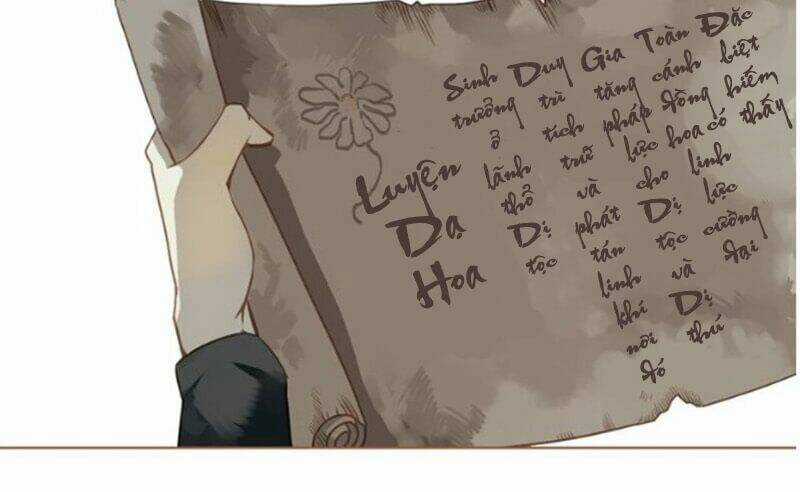 Luyện
Dạ
Hoa
Sinh
trưởng
ở
lãnh
thổ
Dị
tộc
Duy
trì
tích
trữ
và
phát
tán
linh
khí
nơi
đó
Gia
tăng
pháp
lực
cho
Dị
tộc
và
Dị
thú
Toàn
cánh
đồng
hoa
linh
lực
cường
đại
Đặc
biệt
hiếm
có
thấy